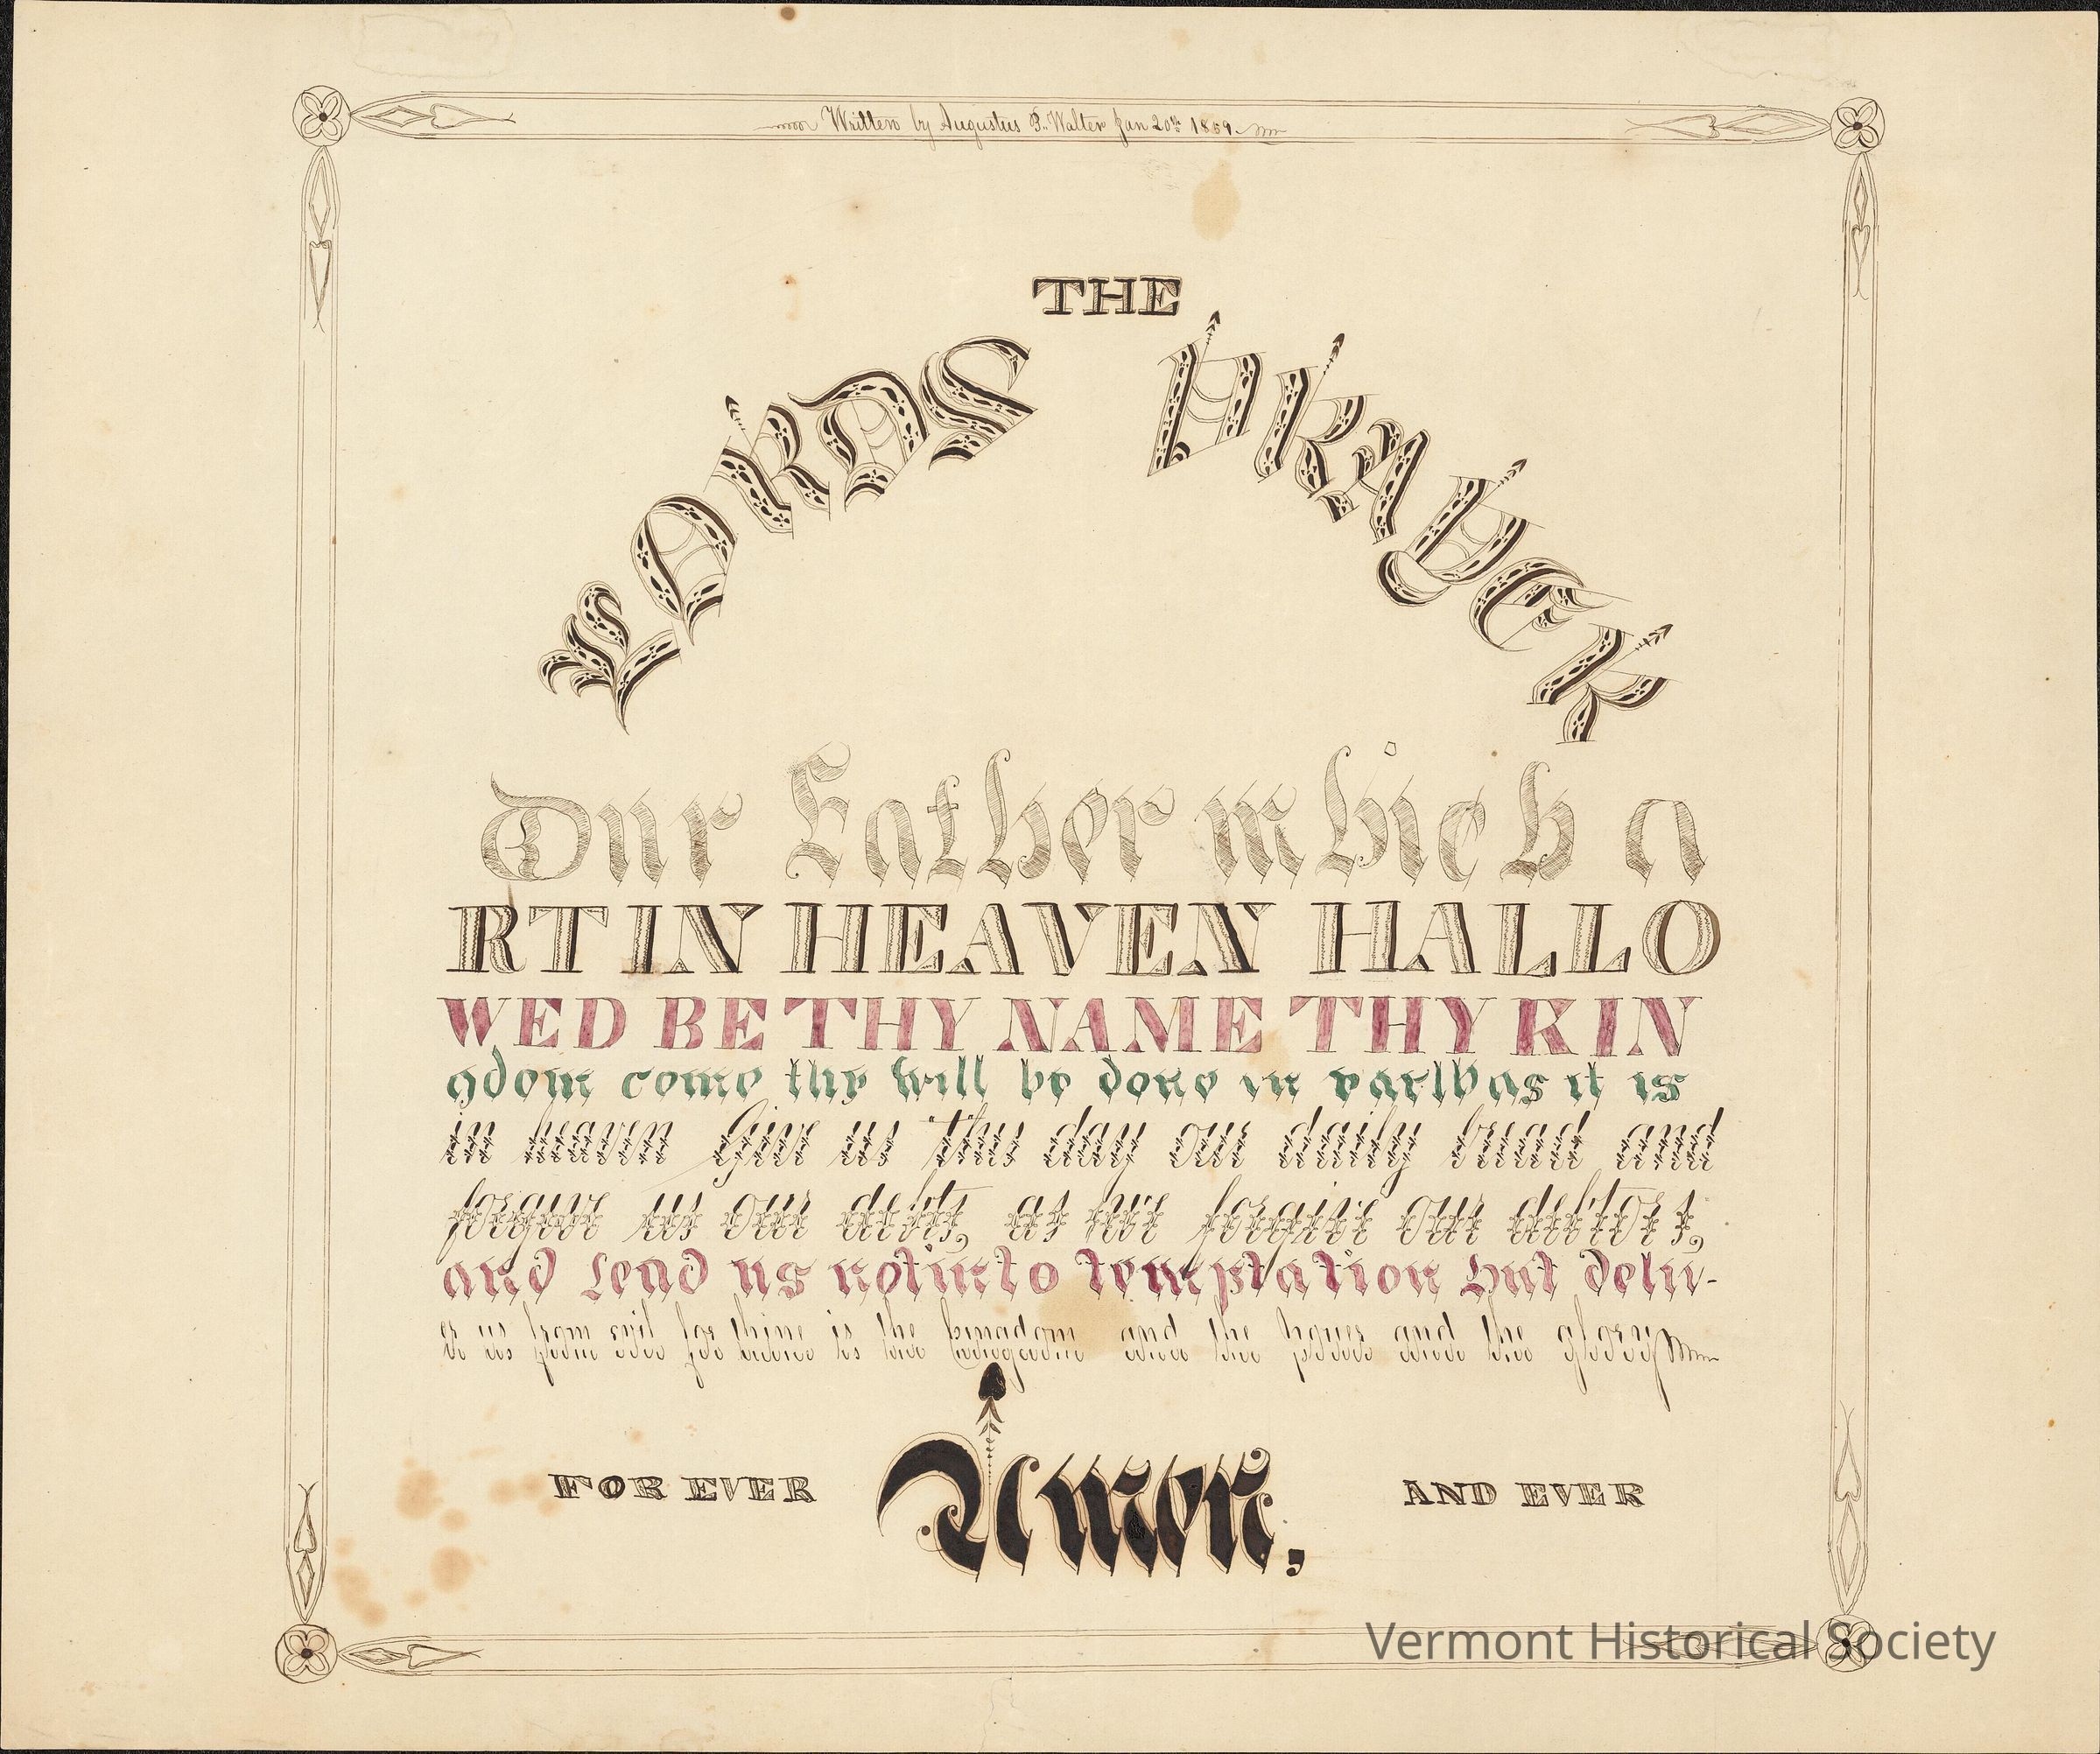 Written by Augustus P. Walter Jan 20th 1859.
THE
LORDS PRAYER
Our Father which a
RT IN HEAVEN HALLO
WED BE THY NAME THY KIN
gdom come thy will be done in earth as it is
in heaven Give us this day our daily bread and
forgive us our debts, as we forgive our debtors,
and lead us not into temptation but deliv-
er us from evil for thine is the kingdom and the power and the glory
FOR EVER Amen, AND EVER
Vermont Historical Society